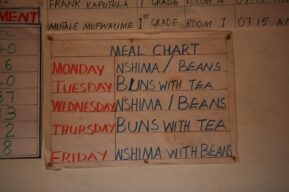 FRANK KAPUTULA 1 GRADE ROOM 2
MUTALE MUFWAUME 1ST GRADE ROOM 1 07:15 A
MENT
MEAL CHART
MONDAY NSHIMA / BEANS
TUESDAY BUNS WITH TEA
WEDNESDAY NSHIMA / BEANS
THURSDAY BUNS WITH TEA
FRIDAY NSHIMA WITH BEANS